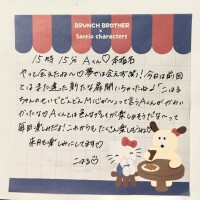 BRUNCH BROTHER
×
Sanrio characters
15時 15分 Aくん♡
やっと会えたね〜♡夢では会えず笑)!今日は前回
とはまた違った新たな展開いちゃったね♪「こはる
ちゃんのせいでどんどんMになっ」って言うAくんがかわい
かったな♡Aくんとは色んなプレイが楽しめそうだな〜って
毎回楽しみだよ!これからもたくさん楽しもうね♡
来月も楽しみにしてます♡
こはる♡